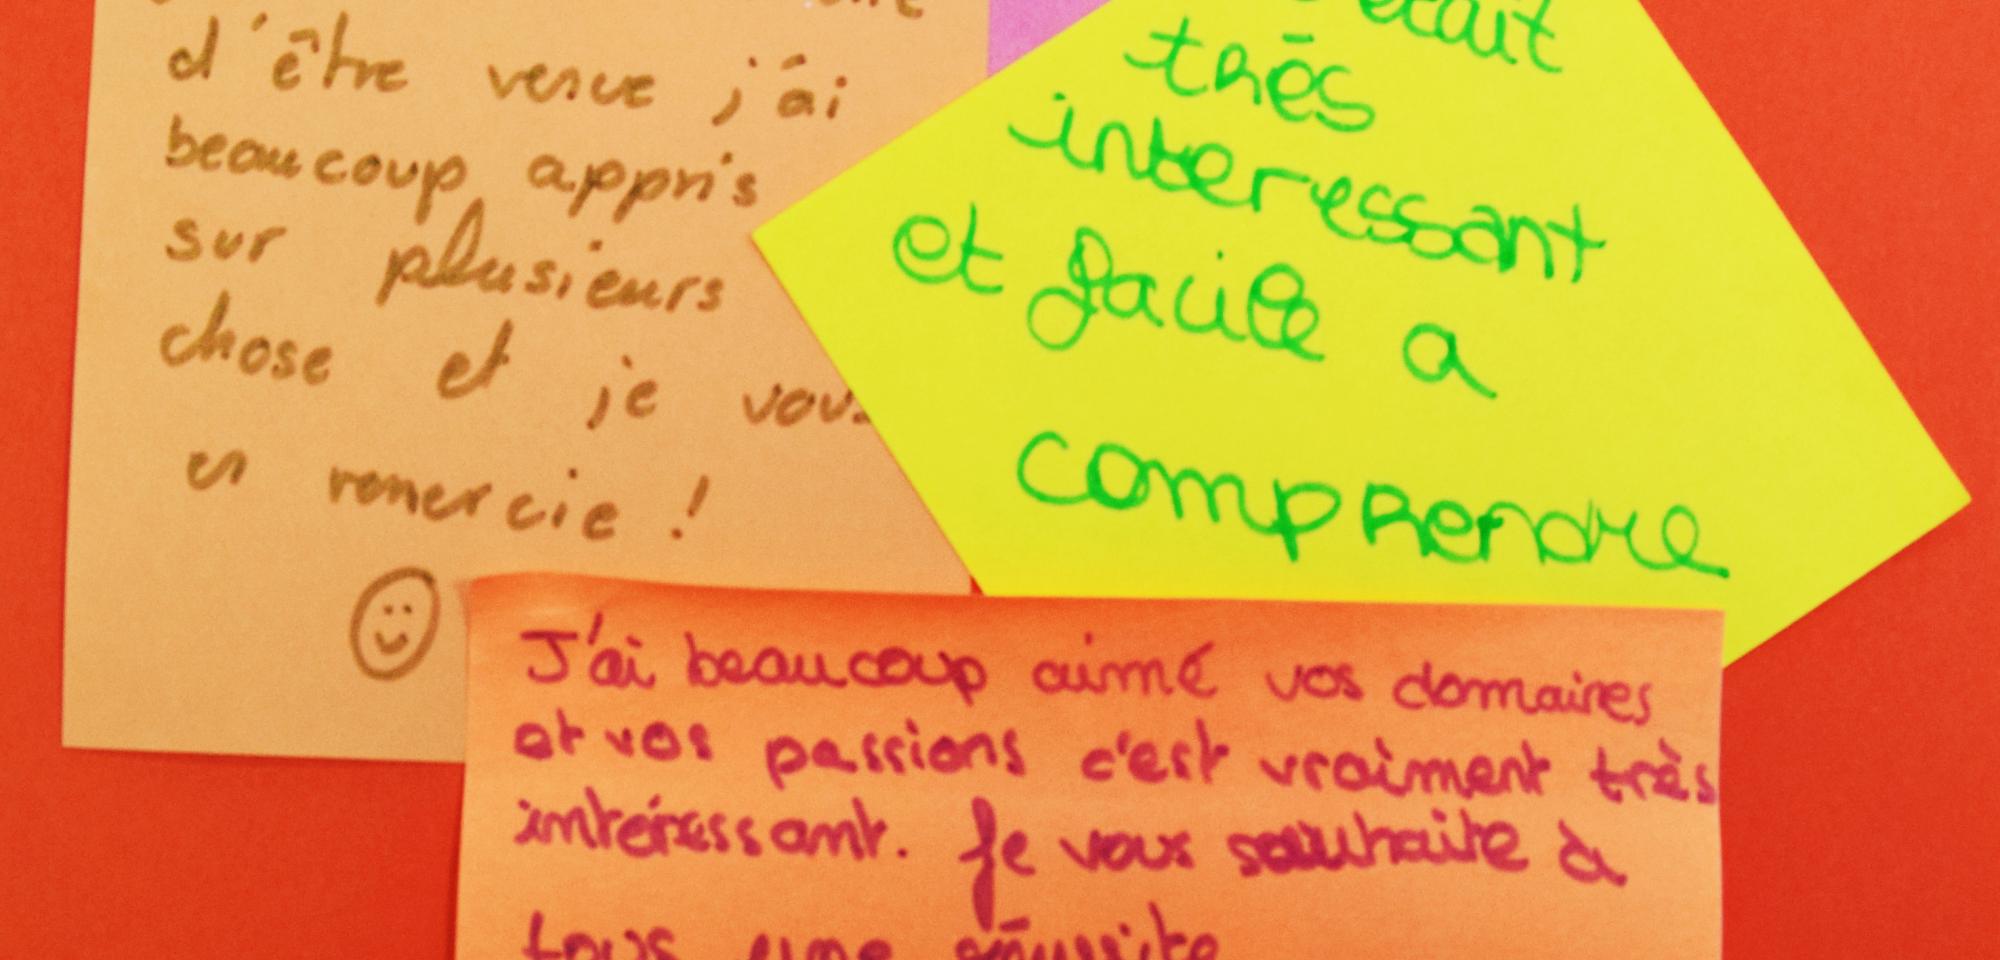 d'être venue j'ai
beaucoup appris
sur plusieurs
chose et je vous
en remercie !
était
très
interessant
et facile a
comprendre
J'ai beaucoup aimé vos domaines
et vos passions c'est vraiment très
intéressant. Je vous souhaite à
tous une réussite